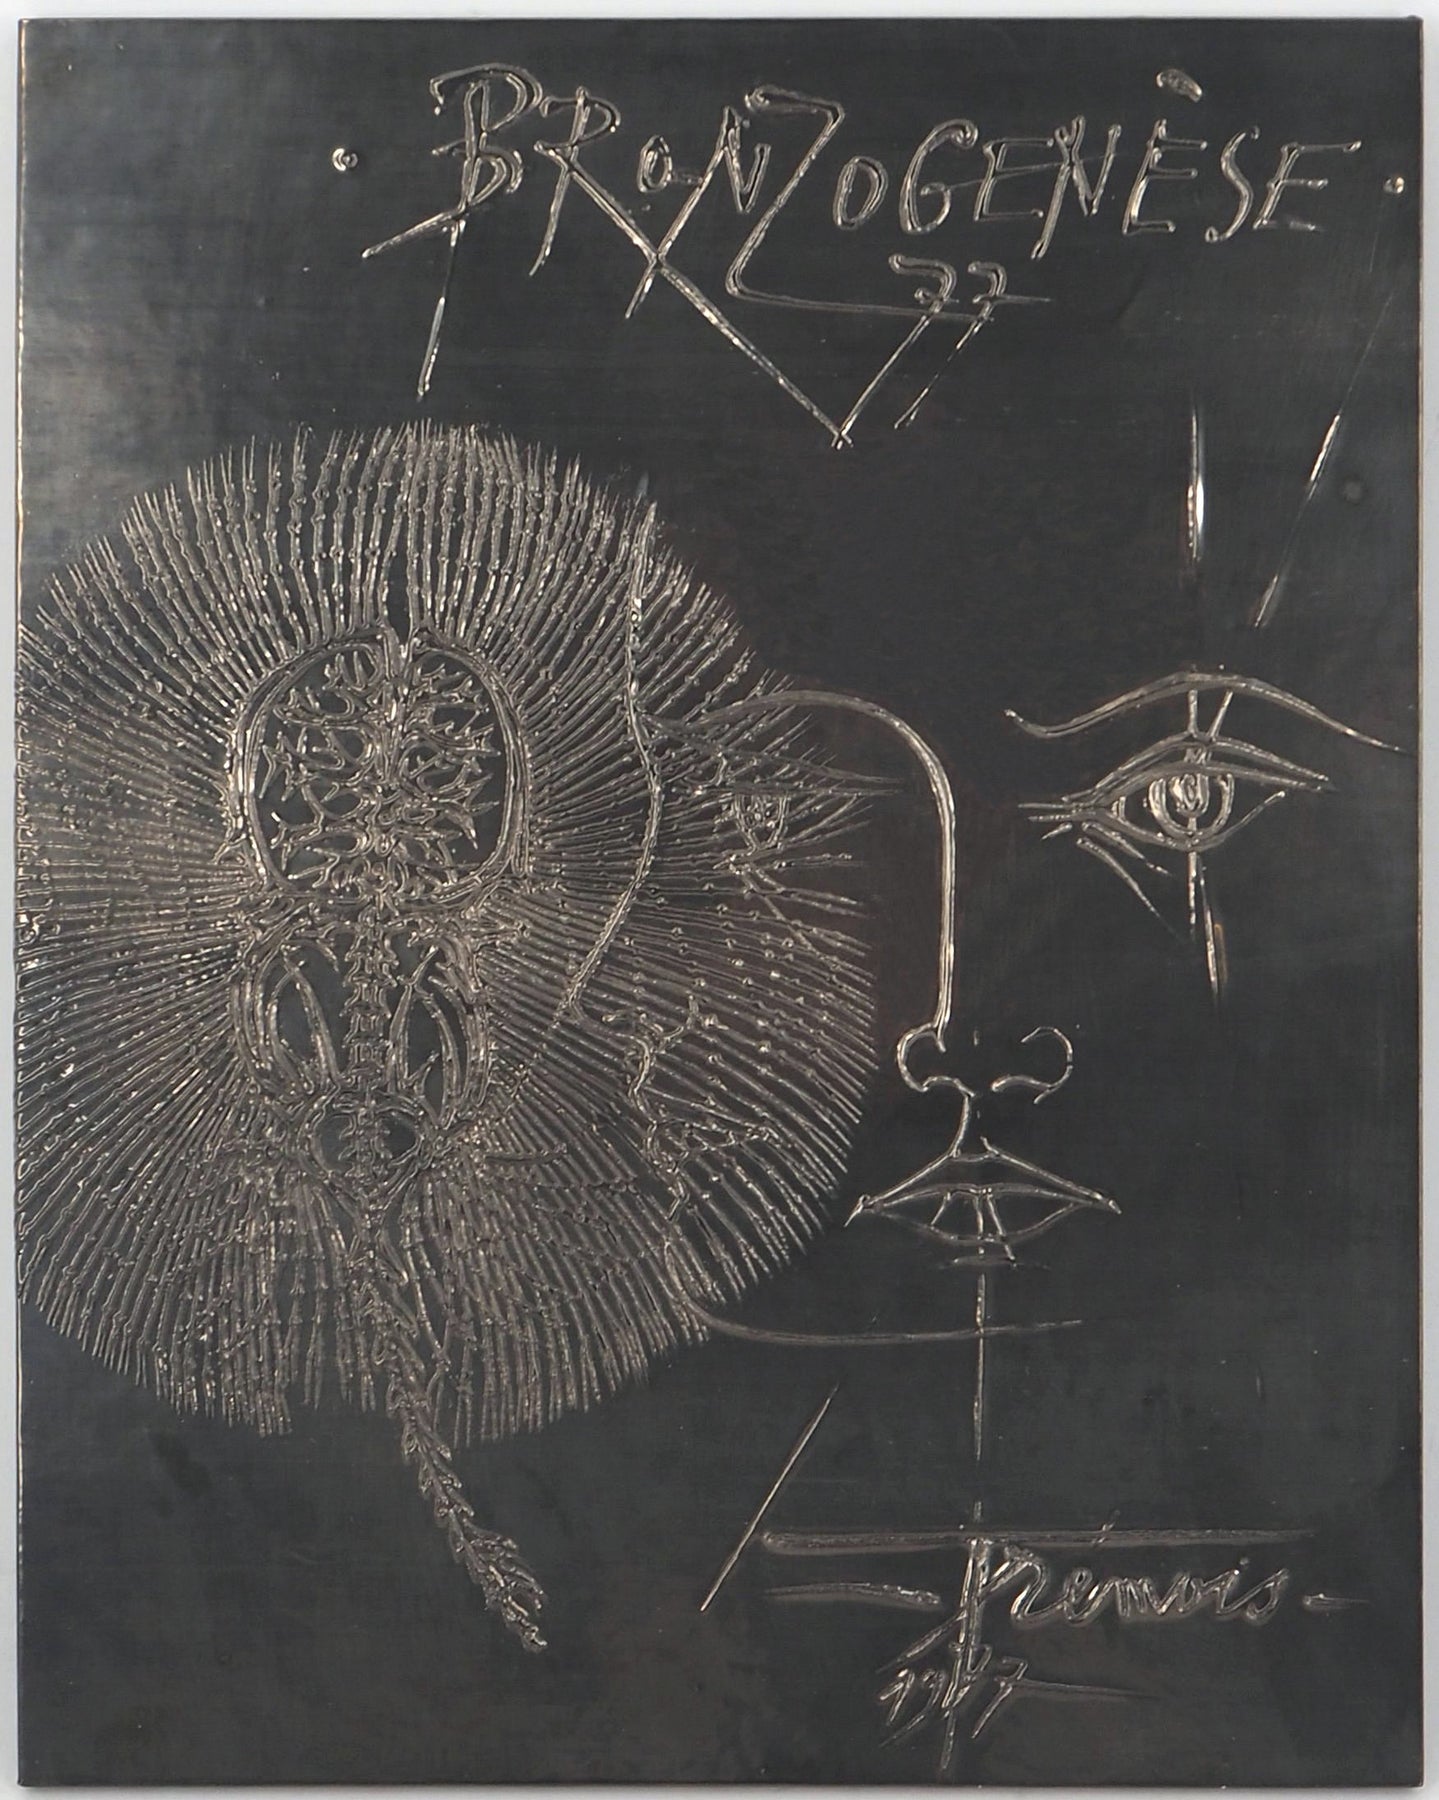 · BRONZOGENÈSE ·
77
Trémois -
1977